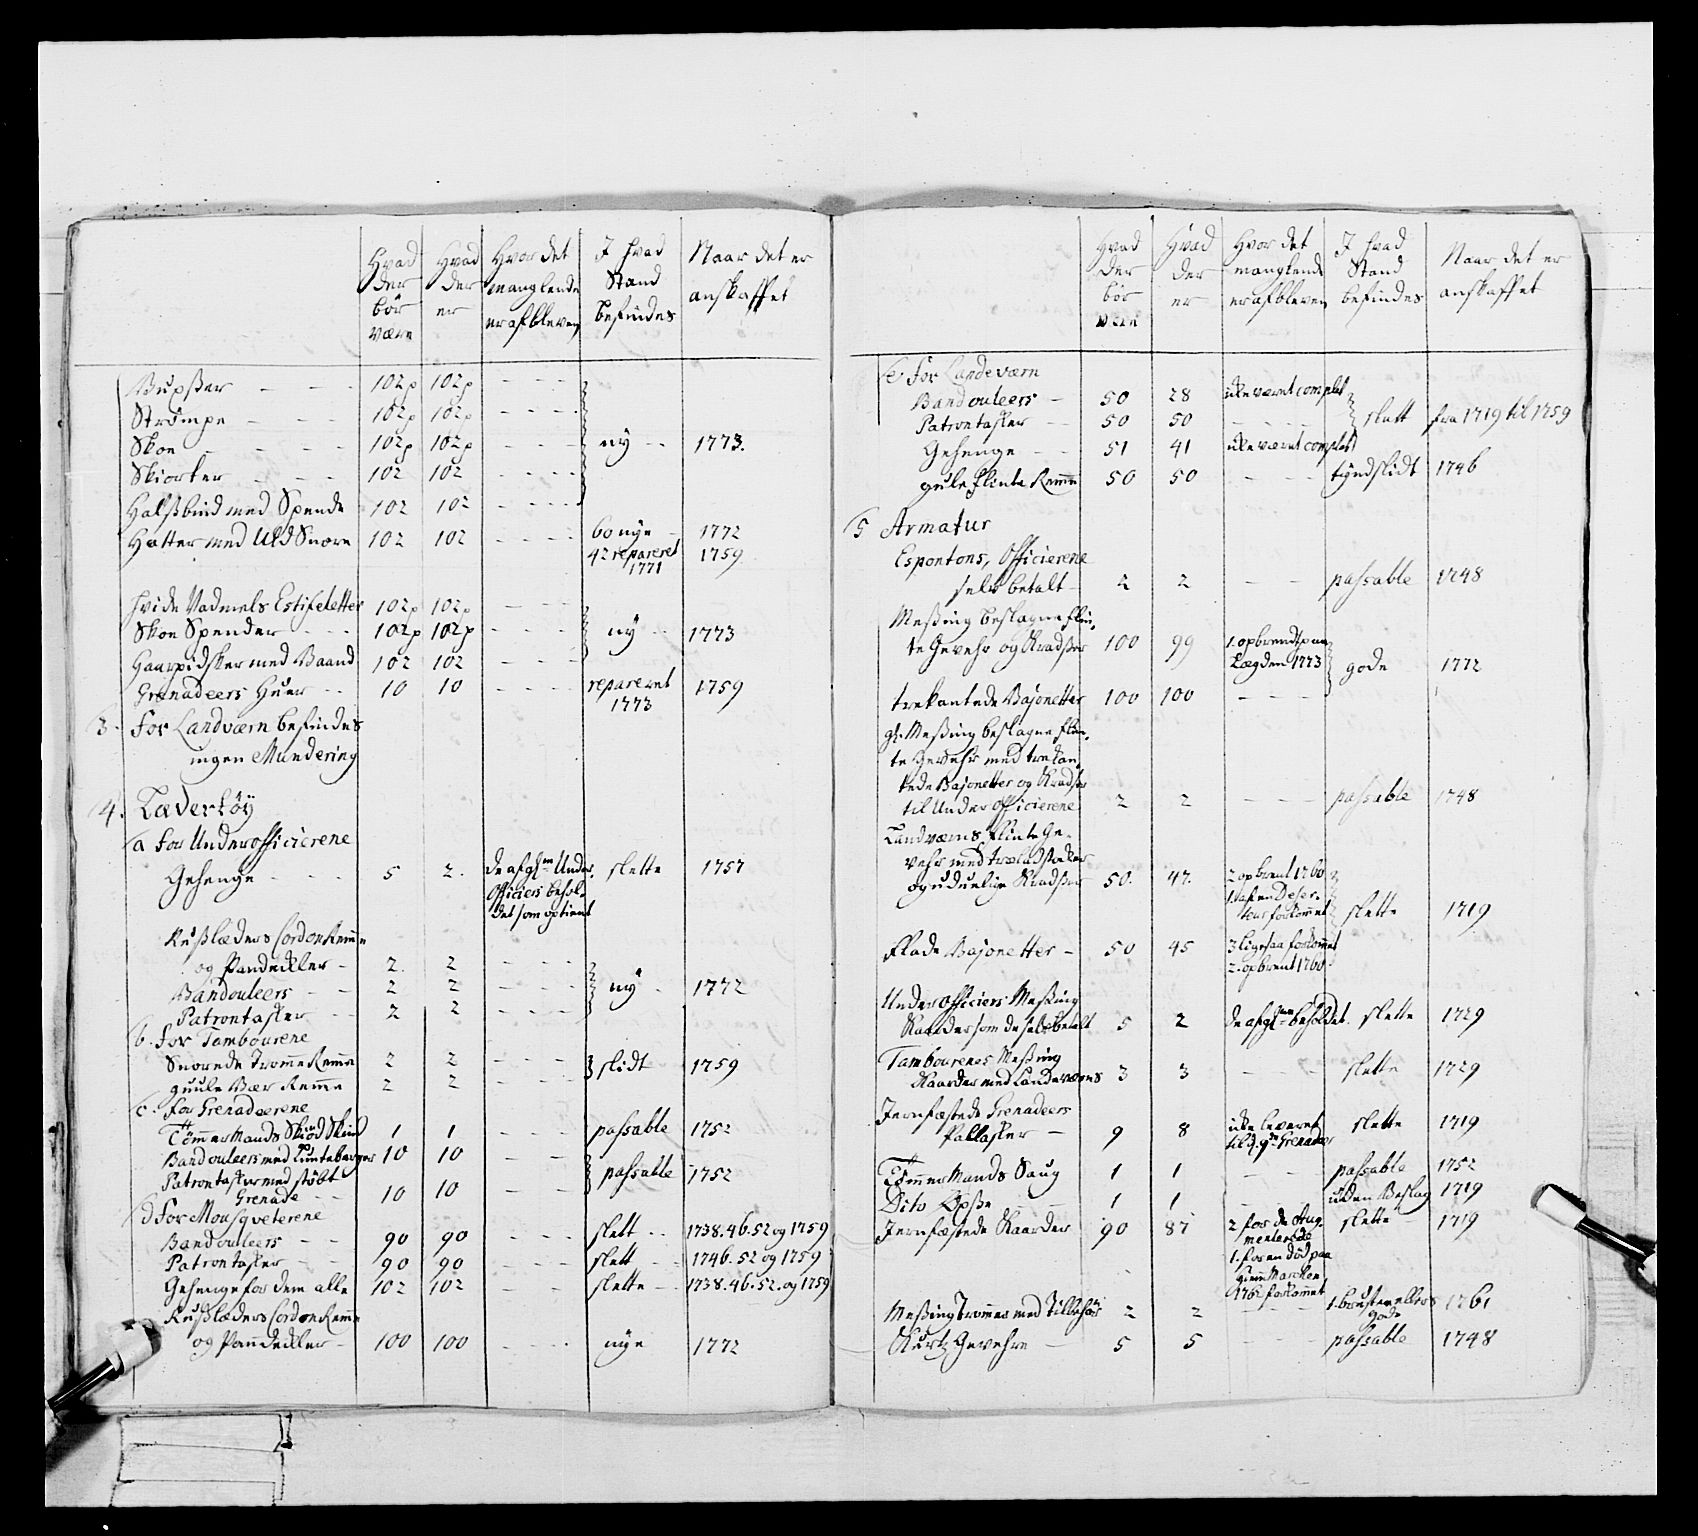 Hvad der bør være | Hvad der er | Hvor det manglende er afbleven | I hvad Stand befindes | Naar det er anskaffet
Buxser - - - 102p 102p - - -
Strømpe - - - 102p 102p - - - -
Skoe - - - 102p 102p - - - ny - - 1773.
Skiorter - - - 102 102 - - - -
Halsbind med Spende 102 102 - - - -
Hatter med Uld Snore 102 102 - - - - 60 nye - 1772
42 repareret 1759
1771
hvide Vadmels Estifeletter 102p 102p - - -
Skoe Spender - - - 102p 102p - - - - ny - - 1773
Haarpidsker med Baand 102 102 - - -
Grenadeers Huer - - 10 10 - - - - repareret 1759
1773
3. For Landværn befindes
ingen Mundering
4. Lædertøy
a for Underofficiererne
Gehenge - - - 5 2. de afg. Under- slette 1757
officiers behol-
det som optient
Ruslæders Cordon Remme
og Pandekler - 2. 2 - - -
Bandouleers - - 2 2 - - - ny - 1772
Patrontasker - - 2 2 - - -
b. for Tambourene
Snorede Tromme Remme 2 2 - - - slidt 1759
guule Bær Remme 2 2 - - -
c. for Grenadeerene
Tømmermands Skiød Skind 1 1 - - passable 1752
Bandouleers med Lunteberger 10 10 - -
Patrontasker med støbt passable 1752
Grenade - - 10 10 - -
d for Mousqveterene
Bandouleers - - 90 90 - - - slett - - 1738. 46. 52 og 1759
Patrontasker - - 90 90 - - - slett - - 1746. 52 og 1759
Gehenge for dem alle 102 102 - - - slette - - 1738. 46. 52. og 1759
Ruslæders Cordon Remme
og Pandekler - 100 100 - - - - nye 1772
Hvad der bør være | Hvad der er | Hvor det manglende er afbleven | I hvad Stand befindes | Naar det er anskaffet
e for Landeværn
Bandouleers - 50 28 icke været complet
Patrontasker - - 50 50 - - - - slett fra 1719 til 1759
Gehenge - - 51 41 icke været complet
gule Flinte Remme 50 50 - - - tyndslidt 1746
5 Armatur
Espontons, Officiererne
selv betalt - 2 2 - - passable 1748
Messing beslagne Flin-
te Gevehr og Kradser 100 99 1. opbrendt paa
Lægden 1773 gode 1772
trekantede Bajonetter 100 100 - - -
Messing beslagne Flin-
te Gevehr med trekan-
tede Bajonetter og Kradser
til Underofficiererne 2 2 - - - passable 1748
Landværns Flinte Ge-
vehr med træladstoker
og uduelige Kradser 50. 47. 2 opbrent 1760
1. af en Deser-
teur forkommet slette 1719
Flade Bajonetter - 50 45 3 ligesaa forkommet
2. opbrent 1760
Underofficiers Messing
Kaarder som de selv betalt 5 2 de afg. beholdet. slette 1729
Tambourenes Messing
Kaarder med Landeværns 3 3 - - - slette 1729
Jernfæstede Grenadeers
Pallasker - 9 8 icke leveret slette 1719
til d. 9de Grenadeer
Tømmermands Saug 1 1 - - passable 1752
Dito Øxse - 1 1 - uden Beslag 1719
Jernfæstede Kaarder 90 87 2 for de Aug- slette 1719
menterede
1. for en død paa
Marchen
1762 forkommet
Messing Trommer med Tilbehør 2 2 - - 1. brusten ellers 1761
gode
Kurtz Gevehre - 5 5 - - passable 1748